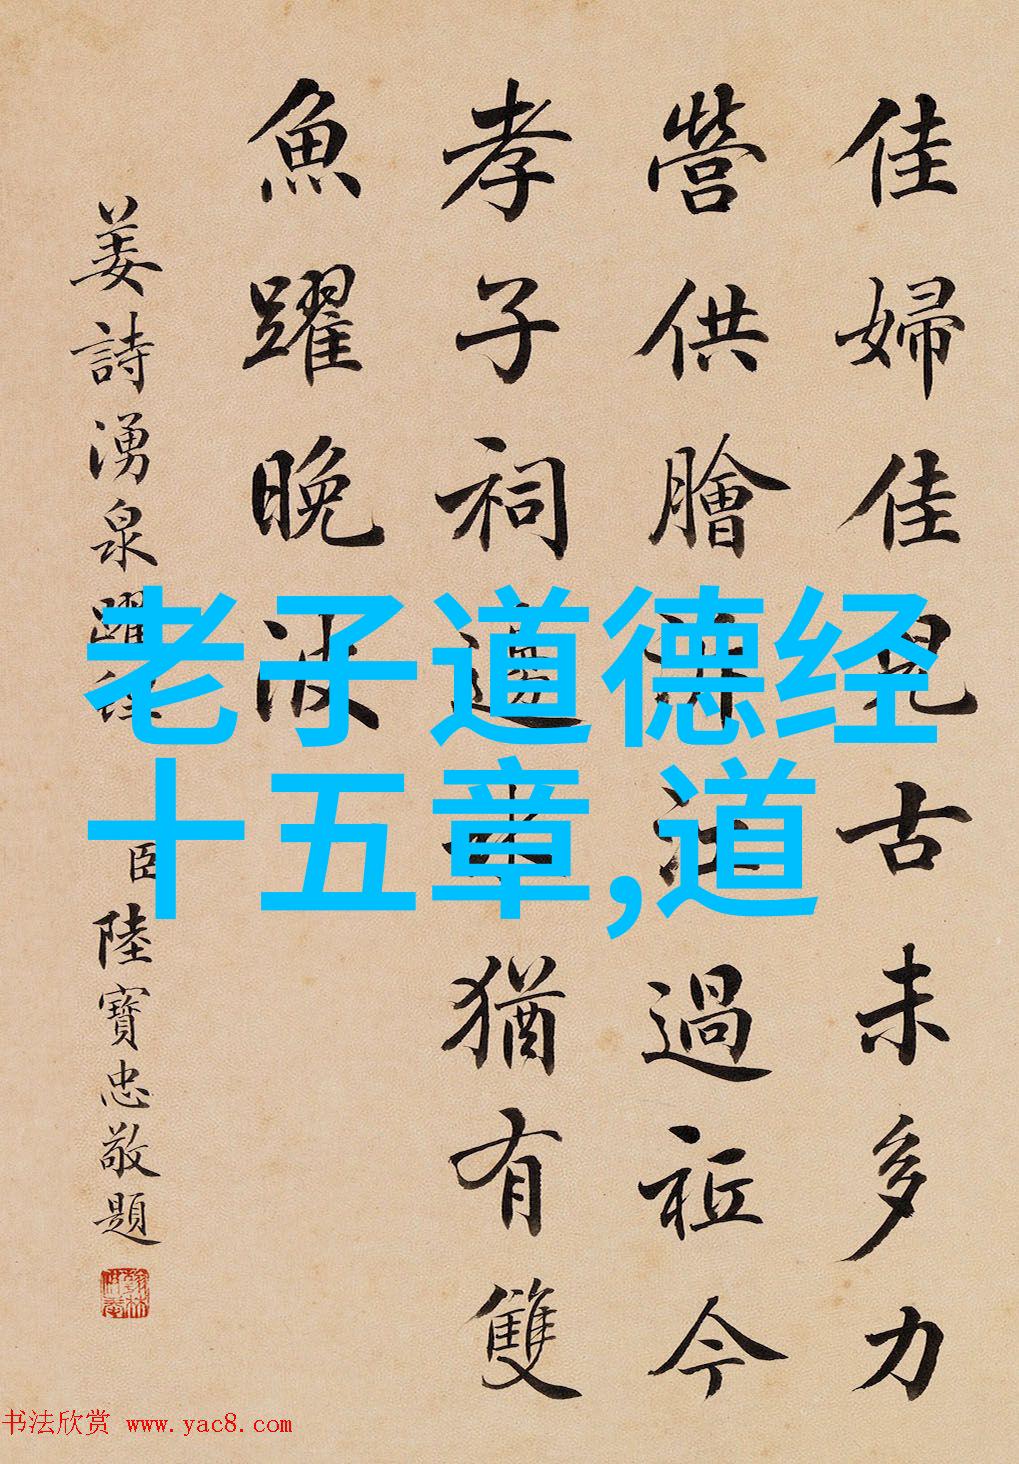 佳婦佳兒古未多力
營供膾江過祗今
孝子祠邊水猶有雙
魚躍晚波
姜詩湧泉躍鯉 臣陸寶忠敬題
老子道德经
十五章,道
书法欣赏 www.yac8.com